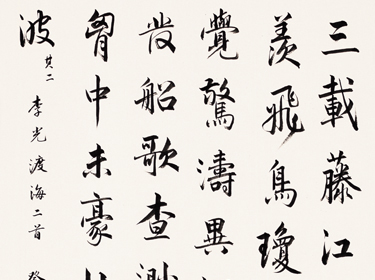 三載藤江
羨飛鳥瓊
覺驚濤異
發船歌查渺
胸中未豪
波 其二
李光渡海二首